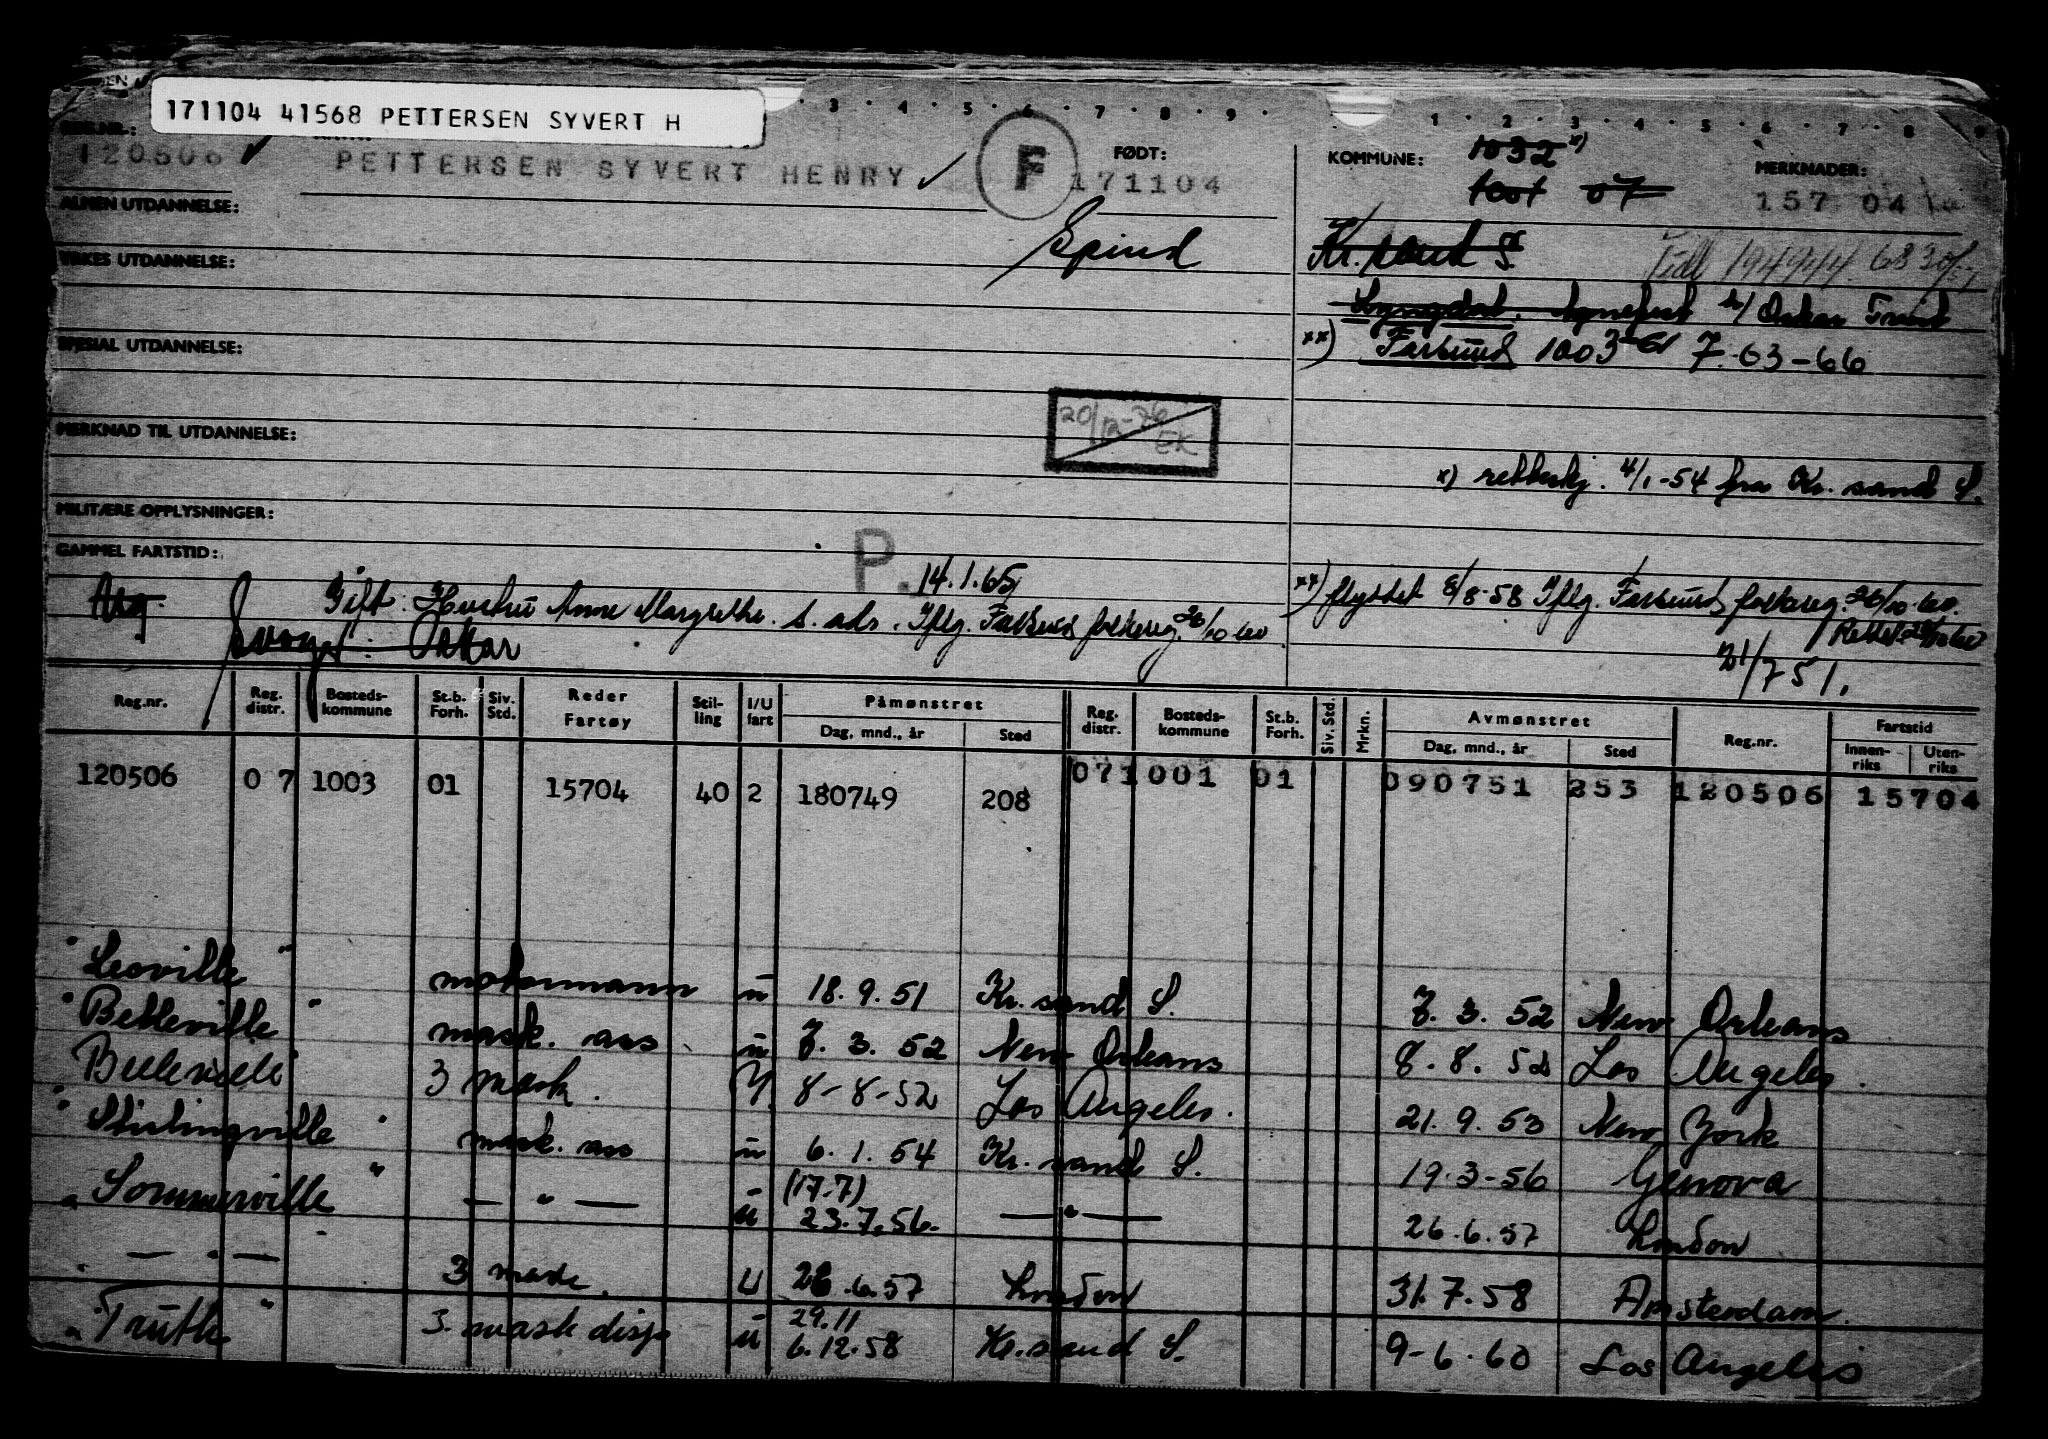 171104 41568 PETTERSEN SYVERT H
3 · 4 · 5 · 6 · 7 · 8 · 9 · 1 · 2 · 3 · 4 · 5 · 6 · 7 · 8 · 9
120506 PETTERSEN SYVERT HENRY F FØDT: 171104 KOMMUNE: 1032 x) MERKNADER: 157 04
07
ALMEN UTDANNELSE:
Spind Kr. sand S
YRKES UTDANNELSE:
Oskar
xx) Farsund 1003 7.63-66
SPESIAL UTDANNELSE:
20/12-76 EK
MERKNAD TIL UTDANNELSE:
x) 4/1-54 fra Kr. sand S.
MILITÆRE OPPLYSNINGER:
GAMMEL FARTSTID:
P. 14.1.65
Gift. Hustru Anne Margrethe. s. adr. Iflg. Farsund folkereg. 26/10-60
xx) flyttet 8/8-58 Iflg. Farsund folkereg. 26/10-60.
Oskar
21/7 51.
Reg.nr. Reg. distr. Bosteds-kommune St.b. Forh. Siv. Std. Reder Fartøy Stil-ling I/U fart Påmønstret Dag, mnd., år Sted Reg. distr. Bosteds-kommune St.b. Forh. Siv. Std. Mrkn. Avmønstret Dag, mnd., år Sted Reg.nr. Fartstid Innen-riks Uten-riks
120506 07 1003 01 15704 40 2 180749 208 071001 01 090751 253 120506 15704
"Leoville" motormann u 18.9.51 Kr. sand S. 7.3.52 New Orleans
"Belleville" mask. ass u 7.3.52 New Orleans 8.8.52 Los Angeles.
Belleville" 3 mask. U 8-8-52 Los Angeles. 21.9.53 New York
"Stirlingville" mask. ass u 6.1.54 Kr. sand S. 19.3-56 Genova
(17.7)
"Sommerville" — " — u 23.7.56. — " — 26.6.57 London
— " — 3 mask. U 26.6.57 London 31.7.58 Amsterdam.
29.11
"Truth" 3. mask disp u 6.12.58 Kr. sand S. 9-6.60 Los Angeles